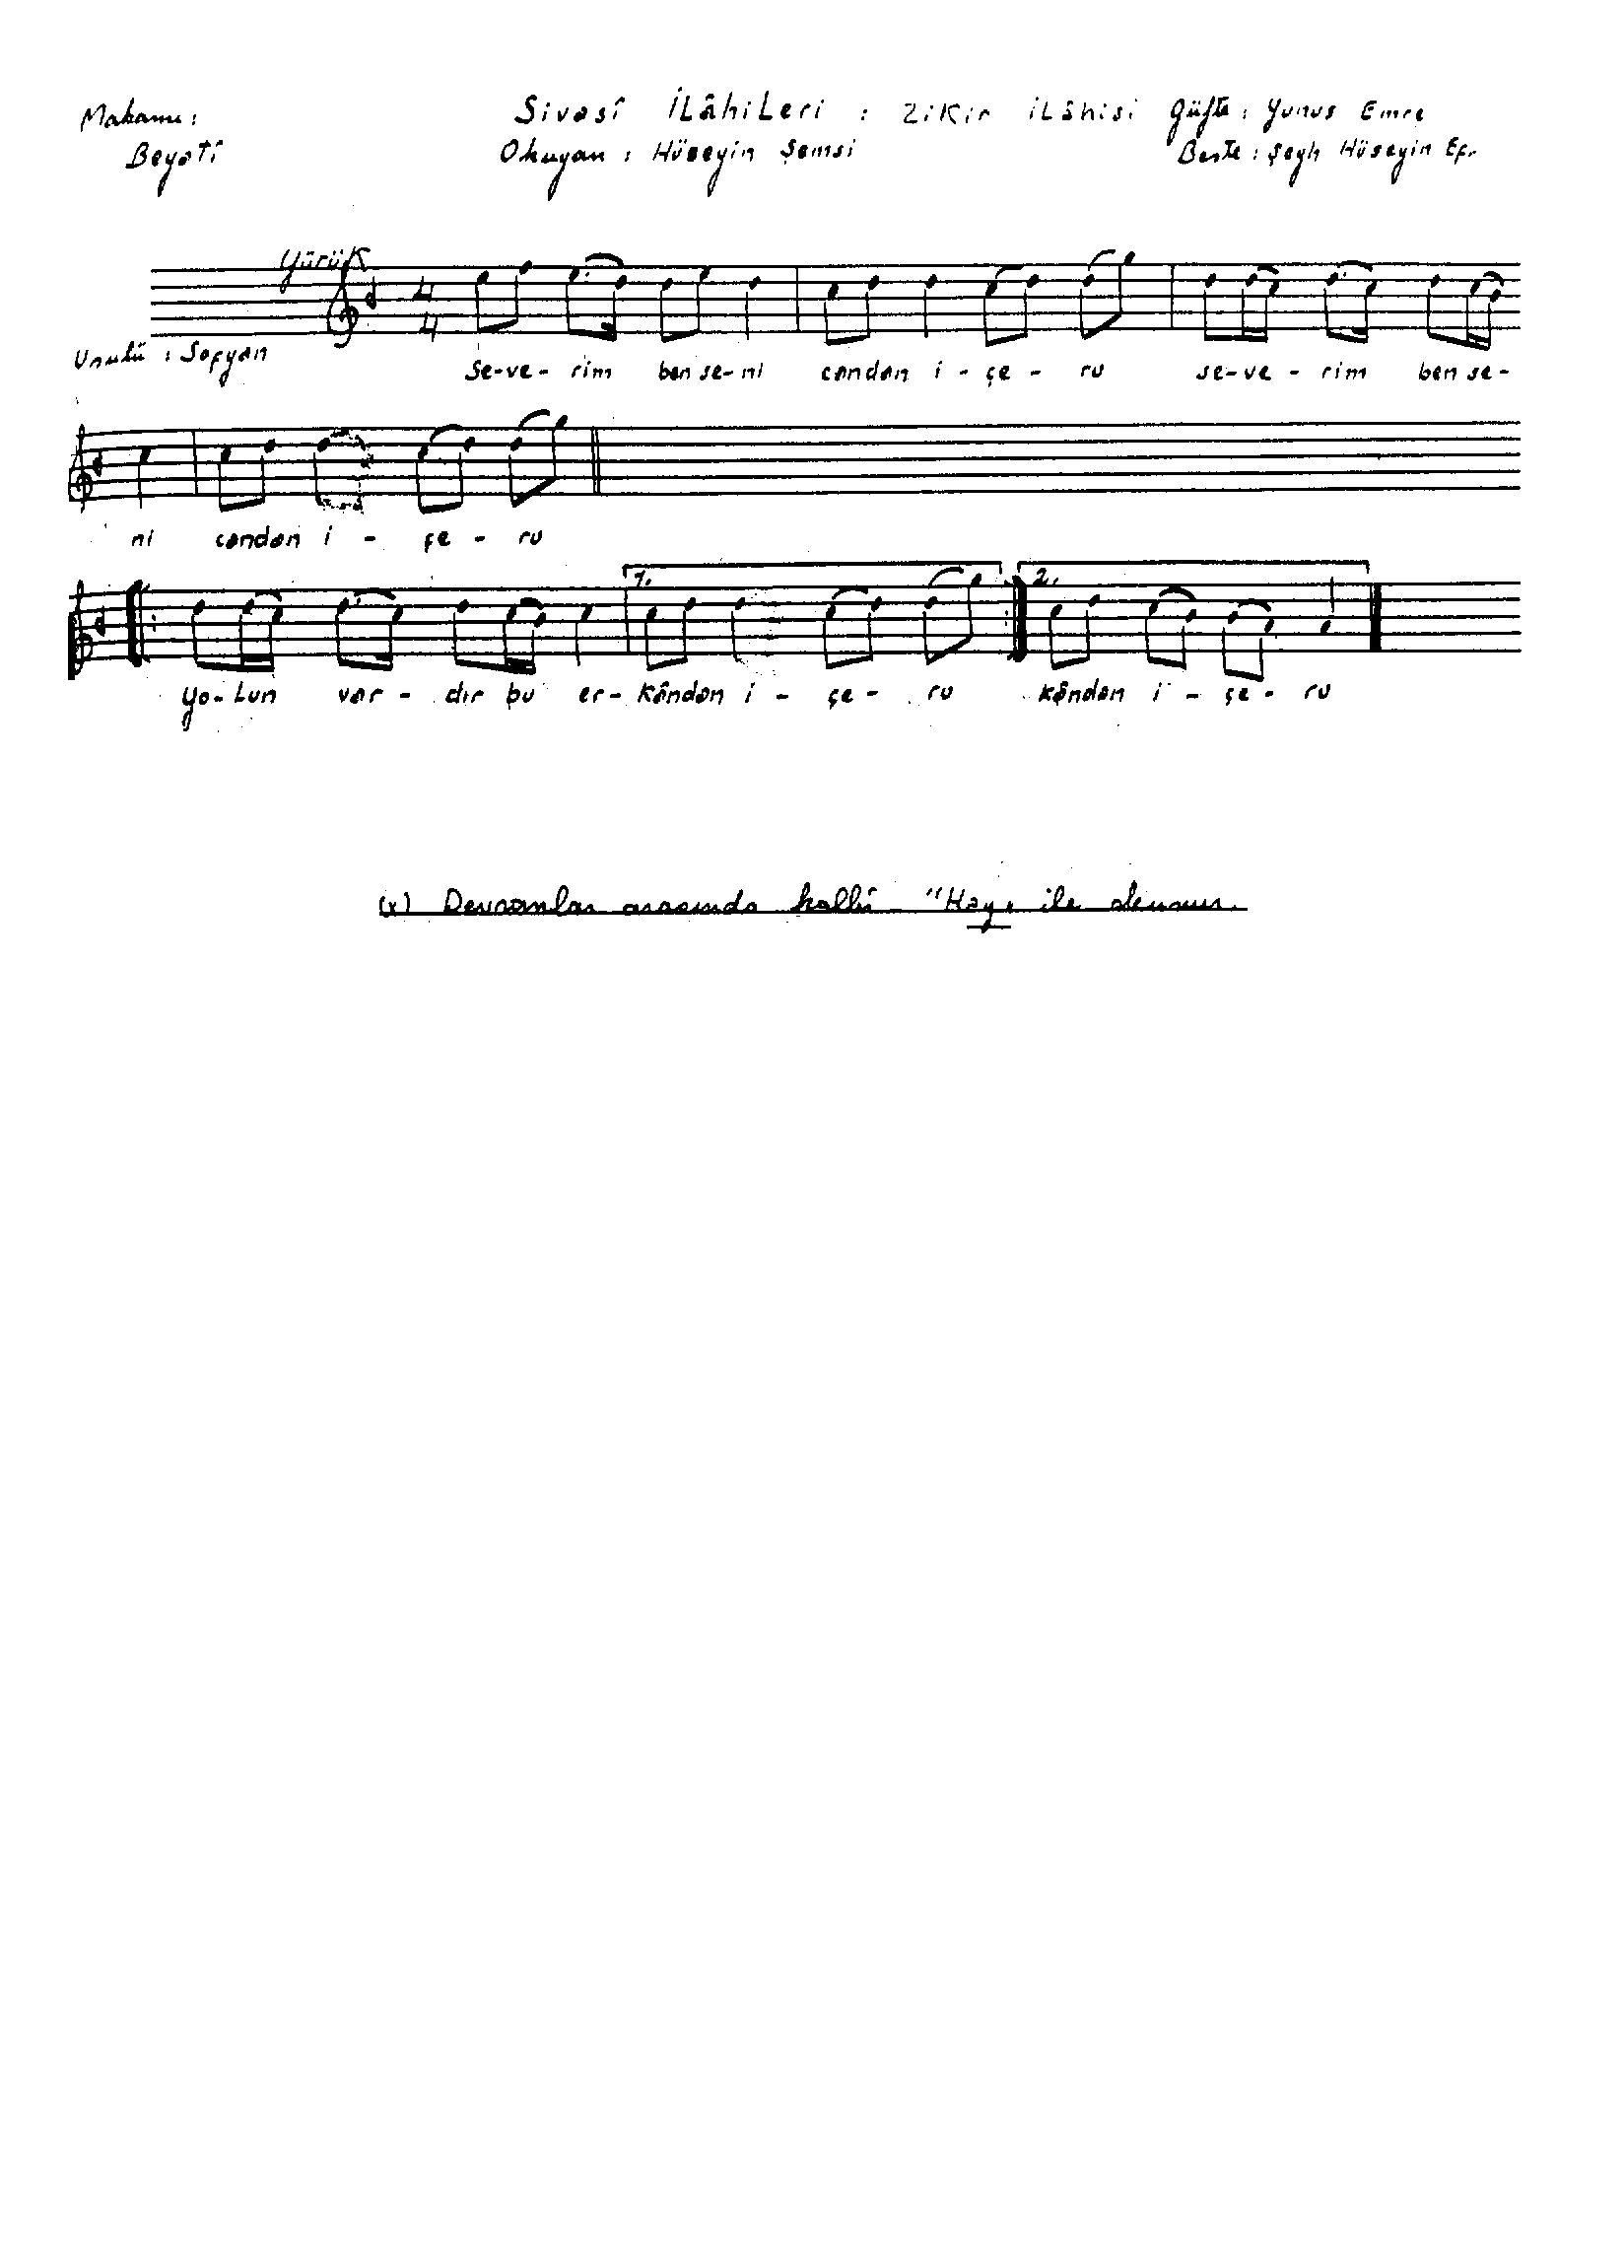 Makamı : Sivasî İLâhiLeri : ZiKir iLâhisi Güfte : Yunus Emre
Beyatî Okuyan : Hüseyin Şemsi Beste : Şeyh Hüseyin Ef.
Yürük
4
4
Usulü : Sofyan
Se-ve- rim ben se-ni candan i - çe - ru se-ve - rim ben se-
ni candan i - çe - ru
1. 2.
Yo-Lun var - dır bu er-kândan i - çe - ru kândan i - çe - ru
(x) Devranlar arasında kalbî "Hay" ile okunur.